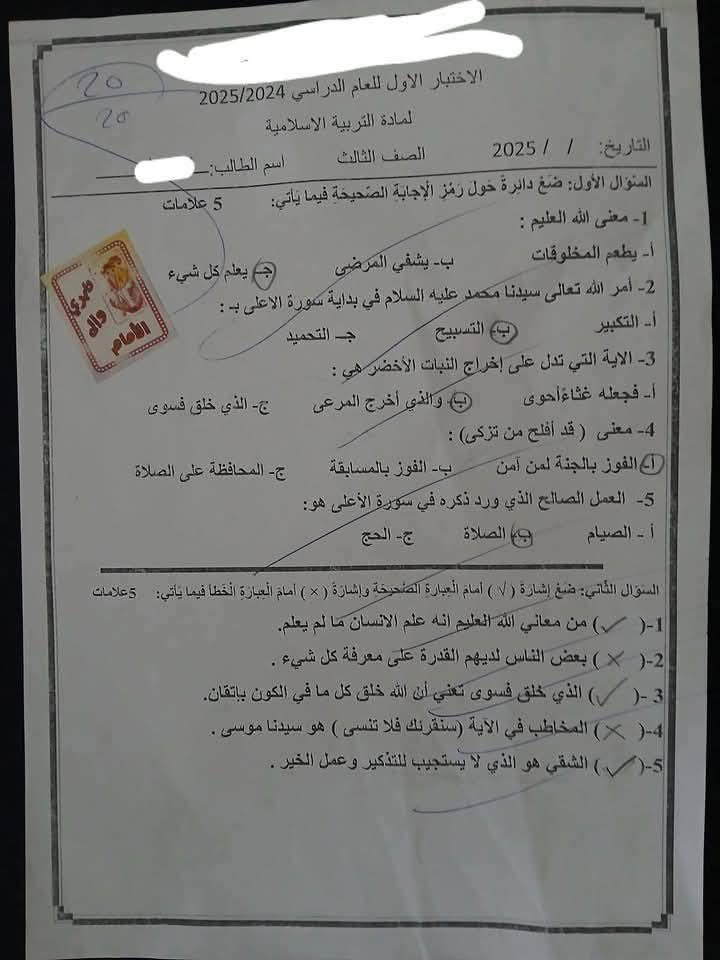 20
20
الاختبار الاول للعام الدراسي 2025/2024
لمادة التربية الاسلامية
التاريخ: / / 2025 الصف الثالث اسم الطالب:
السؤال الأول: ضَعْ دائِرةً حَولَ رَمْزِ الْإجابَةِ الصّحيحَةِ فيما يَأتي: 5 علامات
1- معنى الله العليم :
أ- يطعم المخلوقات ب- يشفي المرضى جـ- يعلم كل شيء
2- أمر الله تعالى سيدنا محمد عليه السلام في بداية سورة الاعلى بـ :
أ- التكبير ب- التسبيح جـ- التحميد
3- الاية التي تدل على إخراج النبات الأخضر هي :
أ- فجعله غثاءً أحوى ب- والذي أخرج المرعى ج- الذي خلق فسوى
4- معنى ( قد أفلح من تزكى) :
أ- الفوز بالجنة لمن آمن ب- الفوز بالمسابقة ج- المحافظة على الصلاة
5- العمل الصالح الذي ورد ذكره في سورة الأعلى هو:
أ - الصيام ب- الصلاة ج- الحج
السؤال الثّاني: ضَعْ إشارَةَ ( √ ) أمامَ الْعِبارَةِ الصّحيحَةِ وإشارَةَ ( × ) أمامَ الْعِبارَةِ الْخَطَأ فيما يَأتي: 5علامات
1-( ✓ ) من معاني الله العليم انه علم الانسان ما لم يعلم.
2-( × ) بعض الناس لديهم القدرة على معرفة كل شيء .
3 -( ✓ ) الذي خلق فسوى تعني أن الله خلق كل ما في الكون بإتقان.
4-( × ) المخاطب في الآية (سنقرئك فلا تنسى ) هو سيدنا موسى .
5-( ✓ ) الشقي هو الذي لا يستجيب للتذكير وعمل الخير .
والى
الأمام